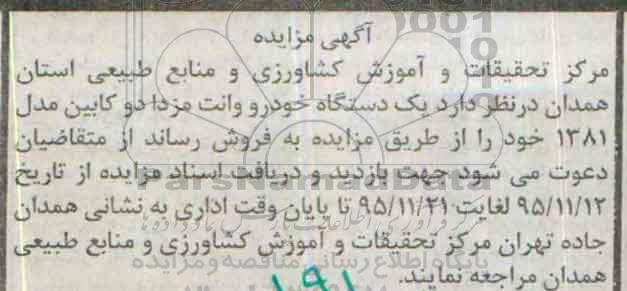 آگهی مزایده
مرکز تحقیقات و آموزش کشاورزی و منابع طبیعی استان
همدان درنظر دارد یک دستگاه خودرو وانت مزدا دو کابین مدل
۱۳۸۱ خود را از طریق مزایده به فروش رساند از متقاضیان
دعوت می شود جهت بازدید و دریافت اسناد مزایده از تاریخ
۹۵/۱۱/۱۲ لغایت ۹۵/۱۱/۲۱ تا پایان وقت اداری به نشانی همدان
جاده تهران مرکز تحقیقات و آموزش کشاورزی و منابع طبیعی
همدان مراجعه نمایند.
پایگاه اطلاع رسانی مناقصه و مزایده
۱۹۱